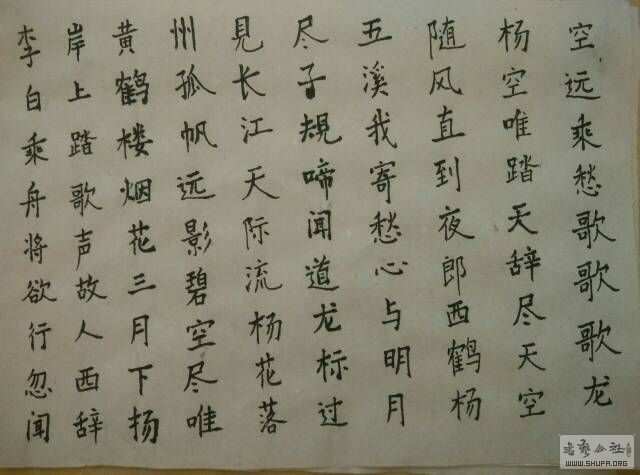 李白乘舟将欲行忽闻
岸上踏歌声故人西辞
黄鹤楼烟花三月下扬
州孤帆远影碧空尽唯
見长江天际流杨花落
尽子規啼闻道龙标过
五溪我寄愁心与明月
随风直到夜郎西鹤杨
杨空唯踏天辞尽天空
空远乘愁歌歌歌龙
书艺公社
WWW.SHUFA.ORG